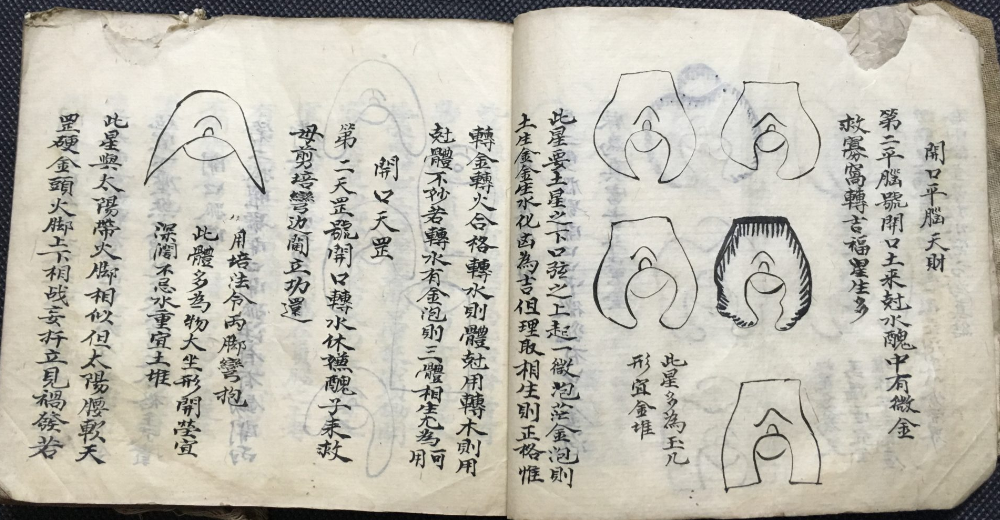 開口平腦天財
第二平腦號開口土來尅水醜中有微金
救寡窩轉吉福星生多
此星多為玉几
形宜金堆
此星要土星之下口弦之上起一微泡茫金泡則
土生金金生水化凶為吉但理取相生則正格惟
轉金轉火合格轉水則體尅用轉木則用
尅體不妙若轉水有金泡則三體相生尤為可
用
開口天罡
第二天罡號開口轉水休嫌醜子來救
母剪培彎边闊立功還
用培法令丙脚彎抱
此體多為物大坐形開塋宜
深濶不忌水重宜土堆
此星與太陽帶火脚相似但太陽腰軟天
罡硬金頭火脚上下相战妄扦立見禍發若